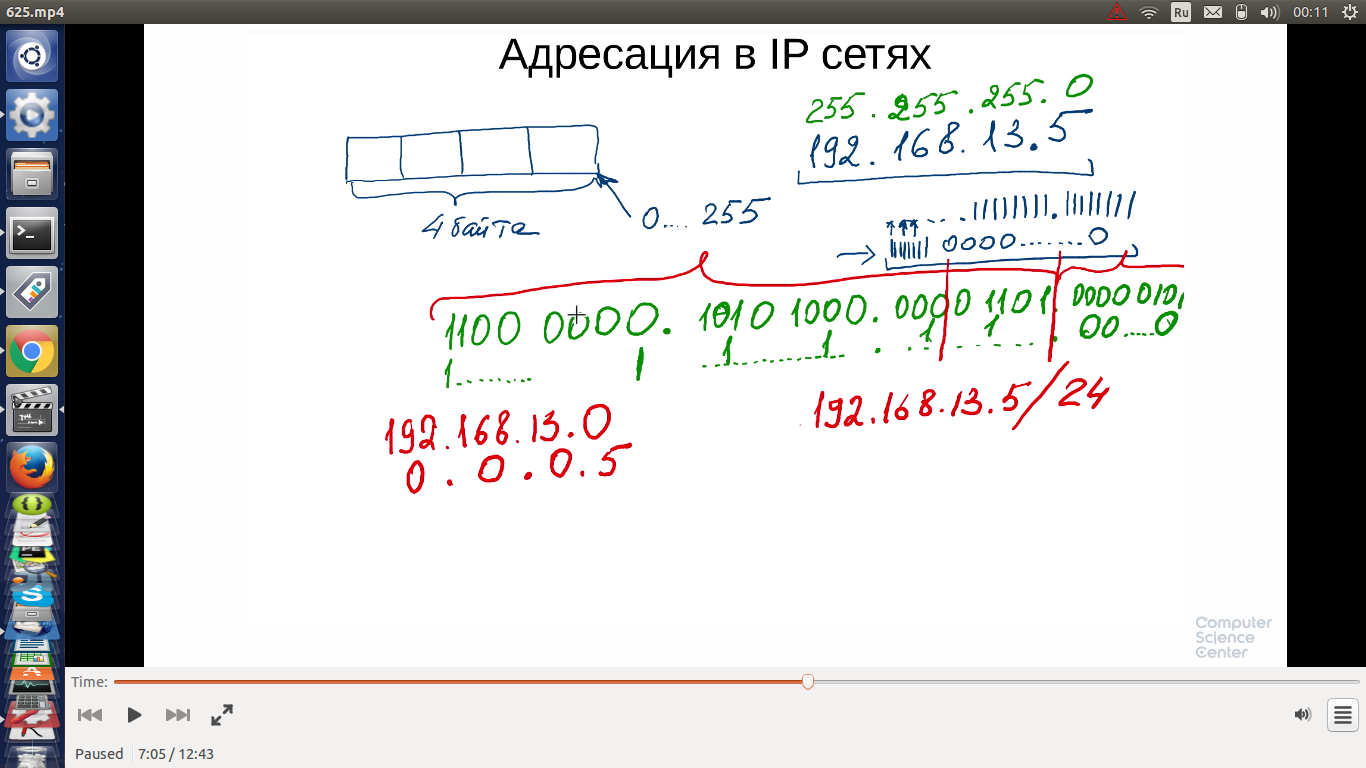 625.mp4
Ru
00:11
Адресация в IP сетях
255.255.255.0
192.168.13.5
4 байта
0....255
0000........0
1100 0000. 1010 1000. 0000 1101. 0000 0101
1........ 1 1........1 . ..1...1... . 00.....0
192.168.13.0
192.168.13.5/24
0.0.0.5
Computer
Science
Center
Time:
Paused
7:05 / 12:43